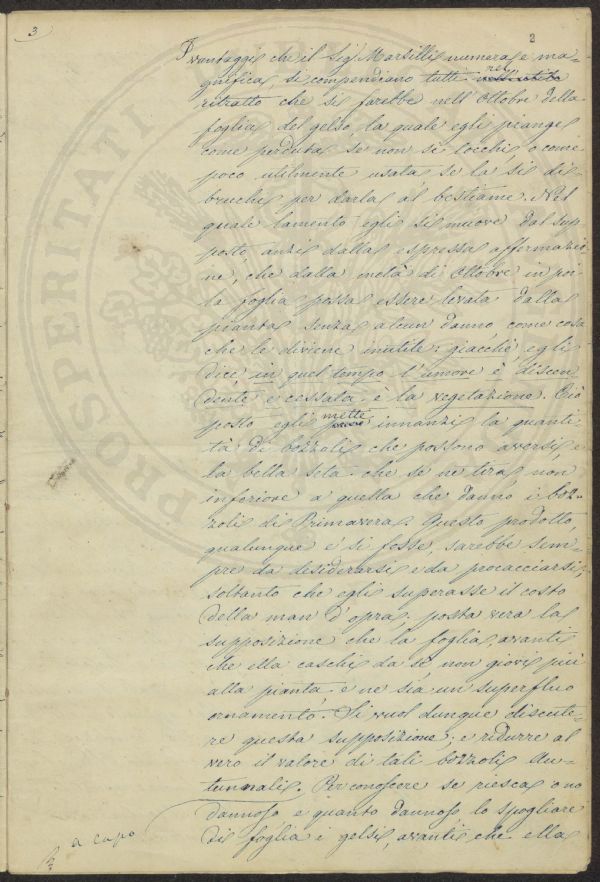 3
2
I vantaggi che il Sig. Marsilli numera, e ma=
gnifica, si compendiano tutti nel
ritratto che si farebbe nell'Ottobre della
foglia del gelso, la quale egli piange
come perduta, se non si tocchi, o come
poco utilmente usata se la si di=
bruchi per darla al bestiame. Nel
quale lamento egli si muove dal sup
posto, anzi dalla espressa affermazio
ne, che dalla metà di Ottobre in poi
la foglia possa essere levata dalla
pianta senza alcun danno, come cosa
che le diviene inutile: giacchè egli
dice, in quel tempo l'umore è discen
dente e cessata è la vegetazione. Ciò
posto egli mette innanzi la quanti
tà di bozzoli che possono aversi e
la bella seta che se ne tira, non
inferiore a quella che danno i boz=
zoli di Primavera. Questo prodotto,
qualunque e' si fosse, sarebbe sem=
pre da desiderarsi e da procacciarsi,
soltanto che egli superasse il costo
della man d'opra: posta vera la
supposizione che la foglia, avanti
che ella caschi da sè non giovi più
alla pianta, e ne sia un superfluo
ornamento. Si vuol dunque discute=
re questa supposizione; e ridurre al
vero il valore di tali bozzoli Au=
tunnali. Per conoscere se riesca o no
dannoso, e quanto dannoso lo spogliare
di foglia i gelsi, avanti che ella
a capo